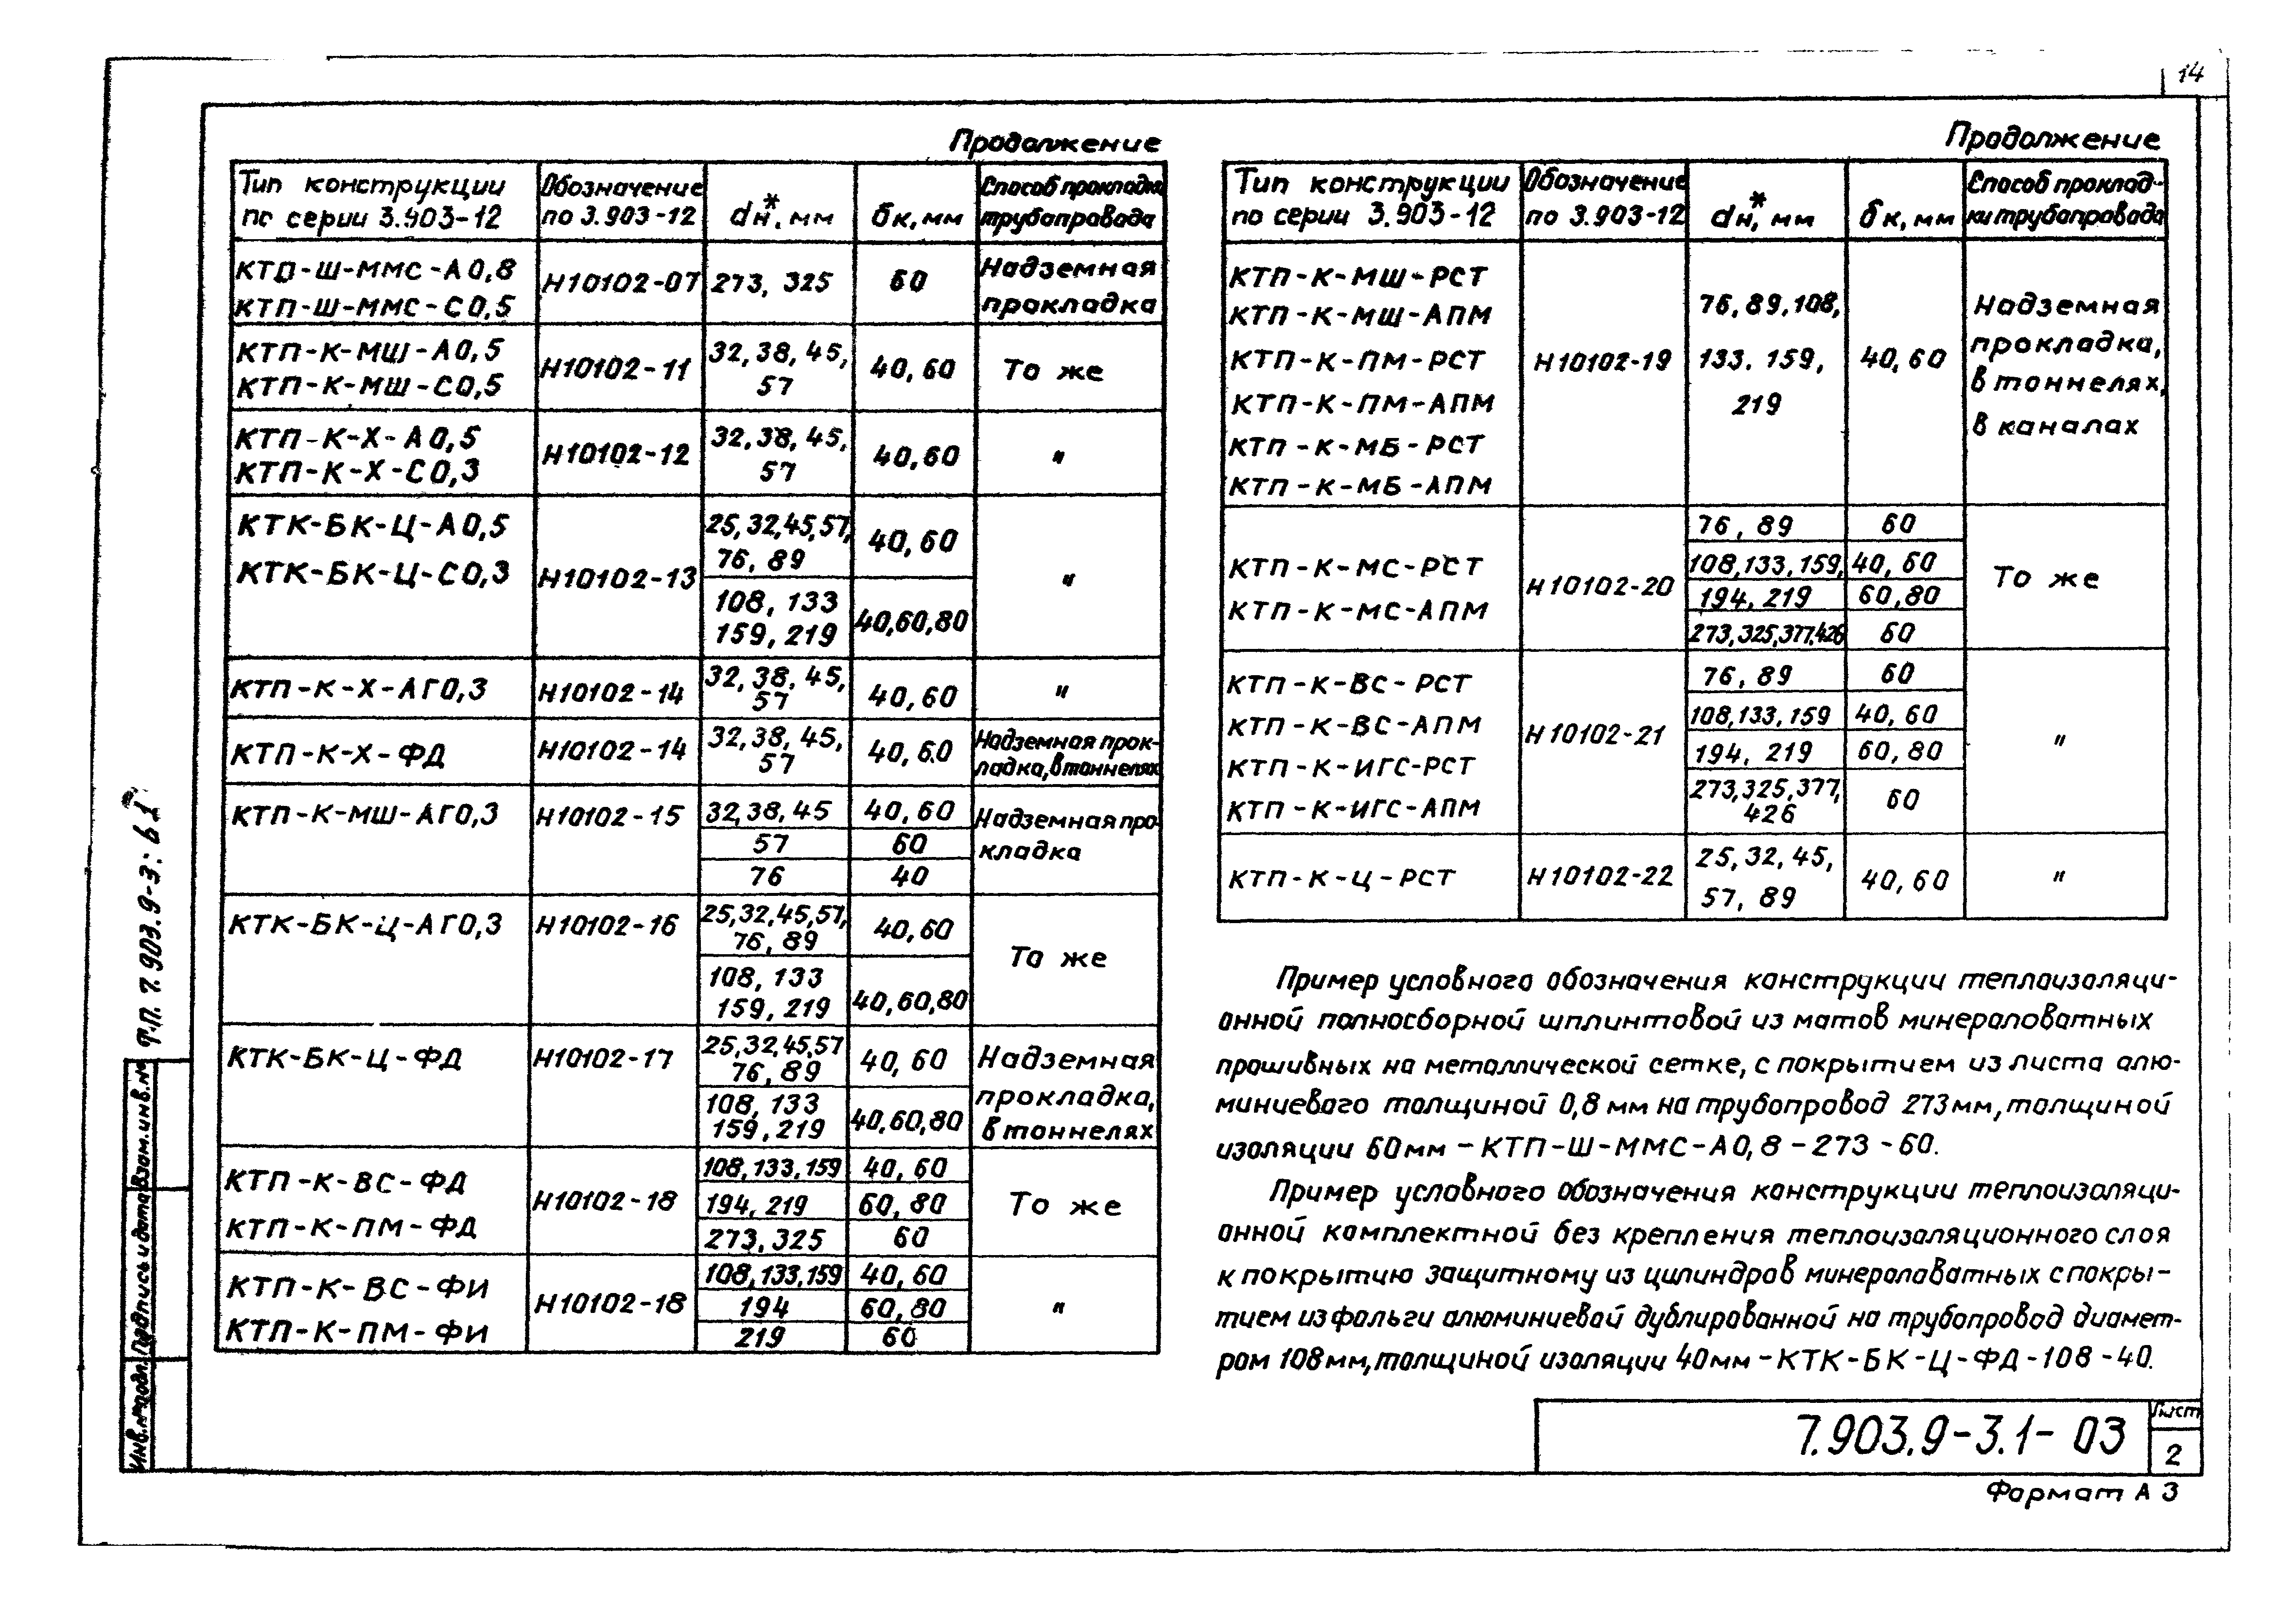 14
Продолжение
Тип конструкции по серии 3.903-12 | Обозначение по 3.903-12 | dн*, мм | бк, мм | Способ прокладки трубопровода
КТП-Ш-ММС-А0,8
КТП-Ш-ММС-С0,5
Н10102-07
273, 325
60
Надземная
прокладка
КТП-К-МШ-А0,5
КТП-К-МШ-С0,5
Н10102-11
32, 38, 45,
57
40, 60
То же
КТП-К-Х-А0,5
КТП-К-Х-С0,3
Н10102-12
32,38, 45,
57
40,60
"
КТК-БК-Ц-А0,5
КТК-БК-Ц-С0,3
Н10102-13
25,32,45,57,
76, 89
40, 60
108, 133
159, 219
40,60,80
"
КТП-К-Х-АГ0,3
Н10102-14
32, 38, 45,
57
40, 60
"
КТП-К-Х-ФД
Н10102-14
32,38, 45,
57
40, 60
Надземная прок-
ладка, в тоннелях
КТП-К-МШ-АГ0,3
Н10102-15
32,38,45
40,60
57
60
76
40
Надземная про-
кладка
КТК-БК-Ц-АГ0,3
Н10102-16
25,32,45,57,
76, 89
40,60
108, 133
159, 219
40,60,80
То же
КТК-БК-Ц-ФД
Н10102-17
25,32,45,57
76, 89
40, 60
108, 133
159, 219
40,60,80
Надземная
прокладка,
в тоннелях
КТП-К-ВС-ФД
КТП-К-ПМ-ФД
Н10102-18
108,133,159
40, 60
194, 219
60, 80
273,325
60
То же
КТП-К-ВС-ФИ
КТП-К-ПМ-ФИ
Н10102-18
108,133,159
40, 60
194
60,80
219
60
"
Продолжение
Тип конструкции по серии 3.903-12 | Обозначение по 3.903-12 | dн*, мм | бк, мм | Способ проклад-ки трубопровода
КТП-К-МШ-РСТ
КТП-К-МШ-АПМ
КТП-К-ПМ-РСТ
КТП-К-ПМ-АПМ
КТП-К-МБ-РСТ
КТП-К-МБ-АПМ
Н10102-19
76, 89,108,
133, 159,
219
40,60
Надземная
прокладка,
в тоннелях,
в каналах
КТП-К-МС-РСТ
КТП-К-МС-АПМ
Н10102-20
76, 89
60
108,133,159,
40, 60
194, 219
60,80
273,325,377,426
60
То же
КТП-К-ВС-РСТ
КТП-К-ВС-АПМ
КТП-К-ИГС-РСТ
КТП-К-ИГС-АПМ
Н10102-21
76, 89
60
108,133,159
40, 60
194, 219
60,80
273,325,377,
426
60
"
КТП-К-Ц-РСТ
Н10102-22
25, 32, 45,
57, 89
40,60
"
Пример условного обозначения конструкции теплоизоляци-
онной полносборной шплинтовой из матов минераловатных
прошивных на металлической сетке, с покрытием из листа алю-
миниевого толщиной 0,8 мм на трубопровод 273мм, толщиной
изоляции 60мм - КТП-Ш-ММС-А0,8-273-60.
Пример условного обозначения конструкции теплоизоляци-
онной комплектной без крепления теплоизоляционного слоя
к покрытию защитному из цилиндров минераловатных с покры-
тием из фольги алюминиевой дублированной на трубопровод диамет-
ром 108мм, толщиной изоляции 40мм - КТК-БК-Ц-ФД-108-40.
Т.П. 7.903.9-3: b 1
Инв.№подл. Подпись и дата Взам.инв.№
7.903.9-3.1-03
Лист
2
Формат А3